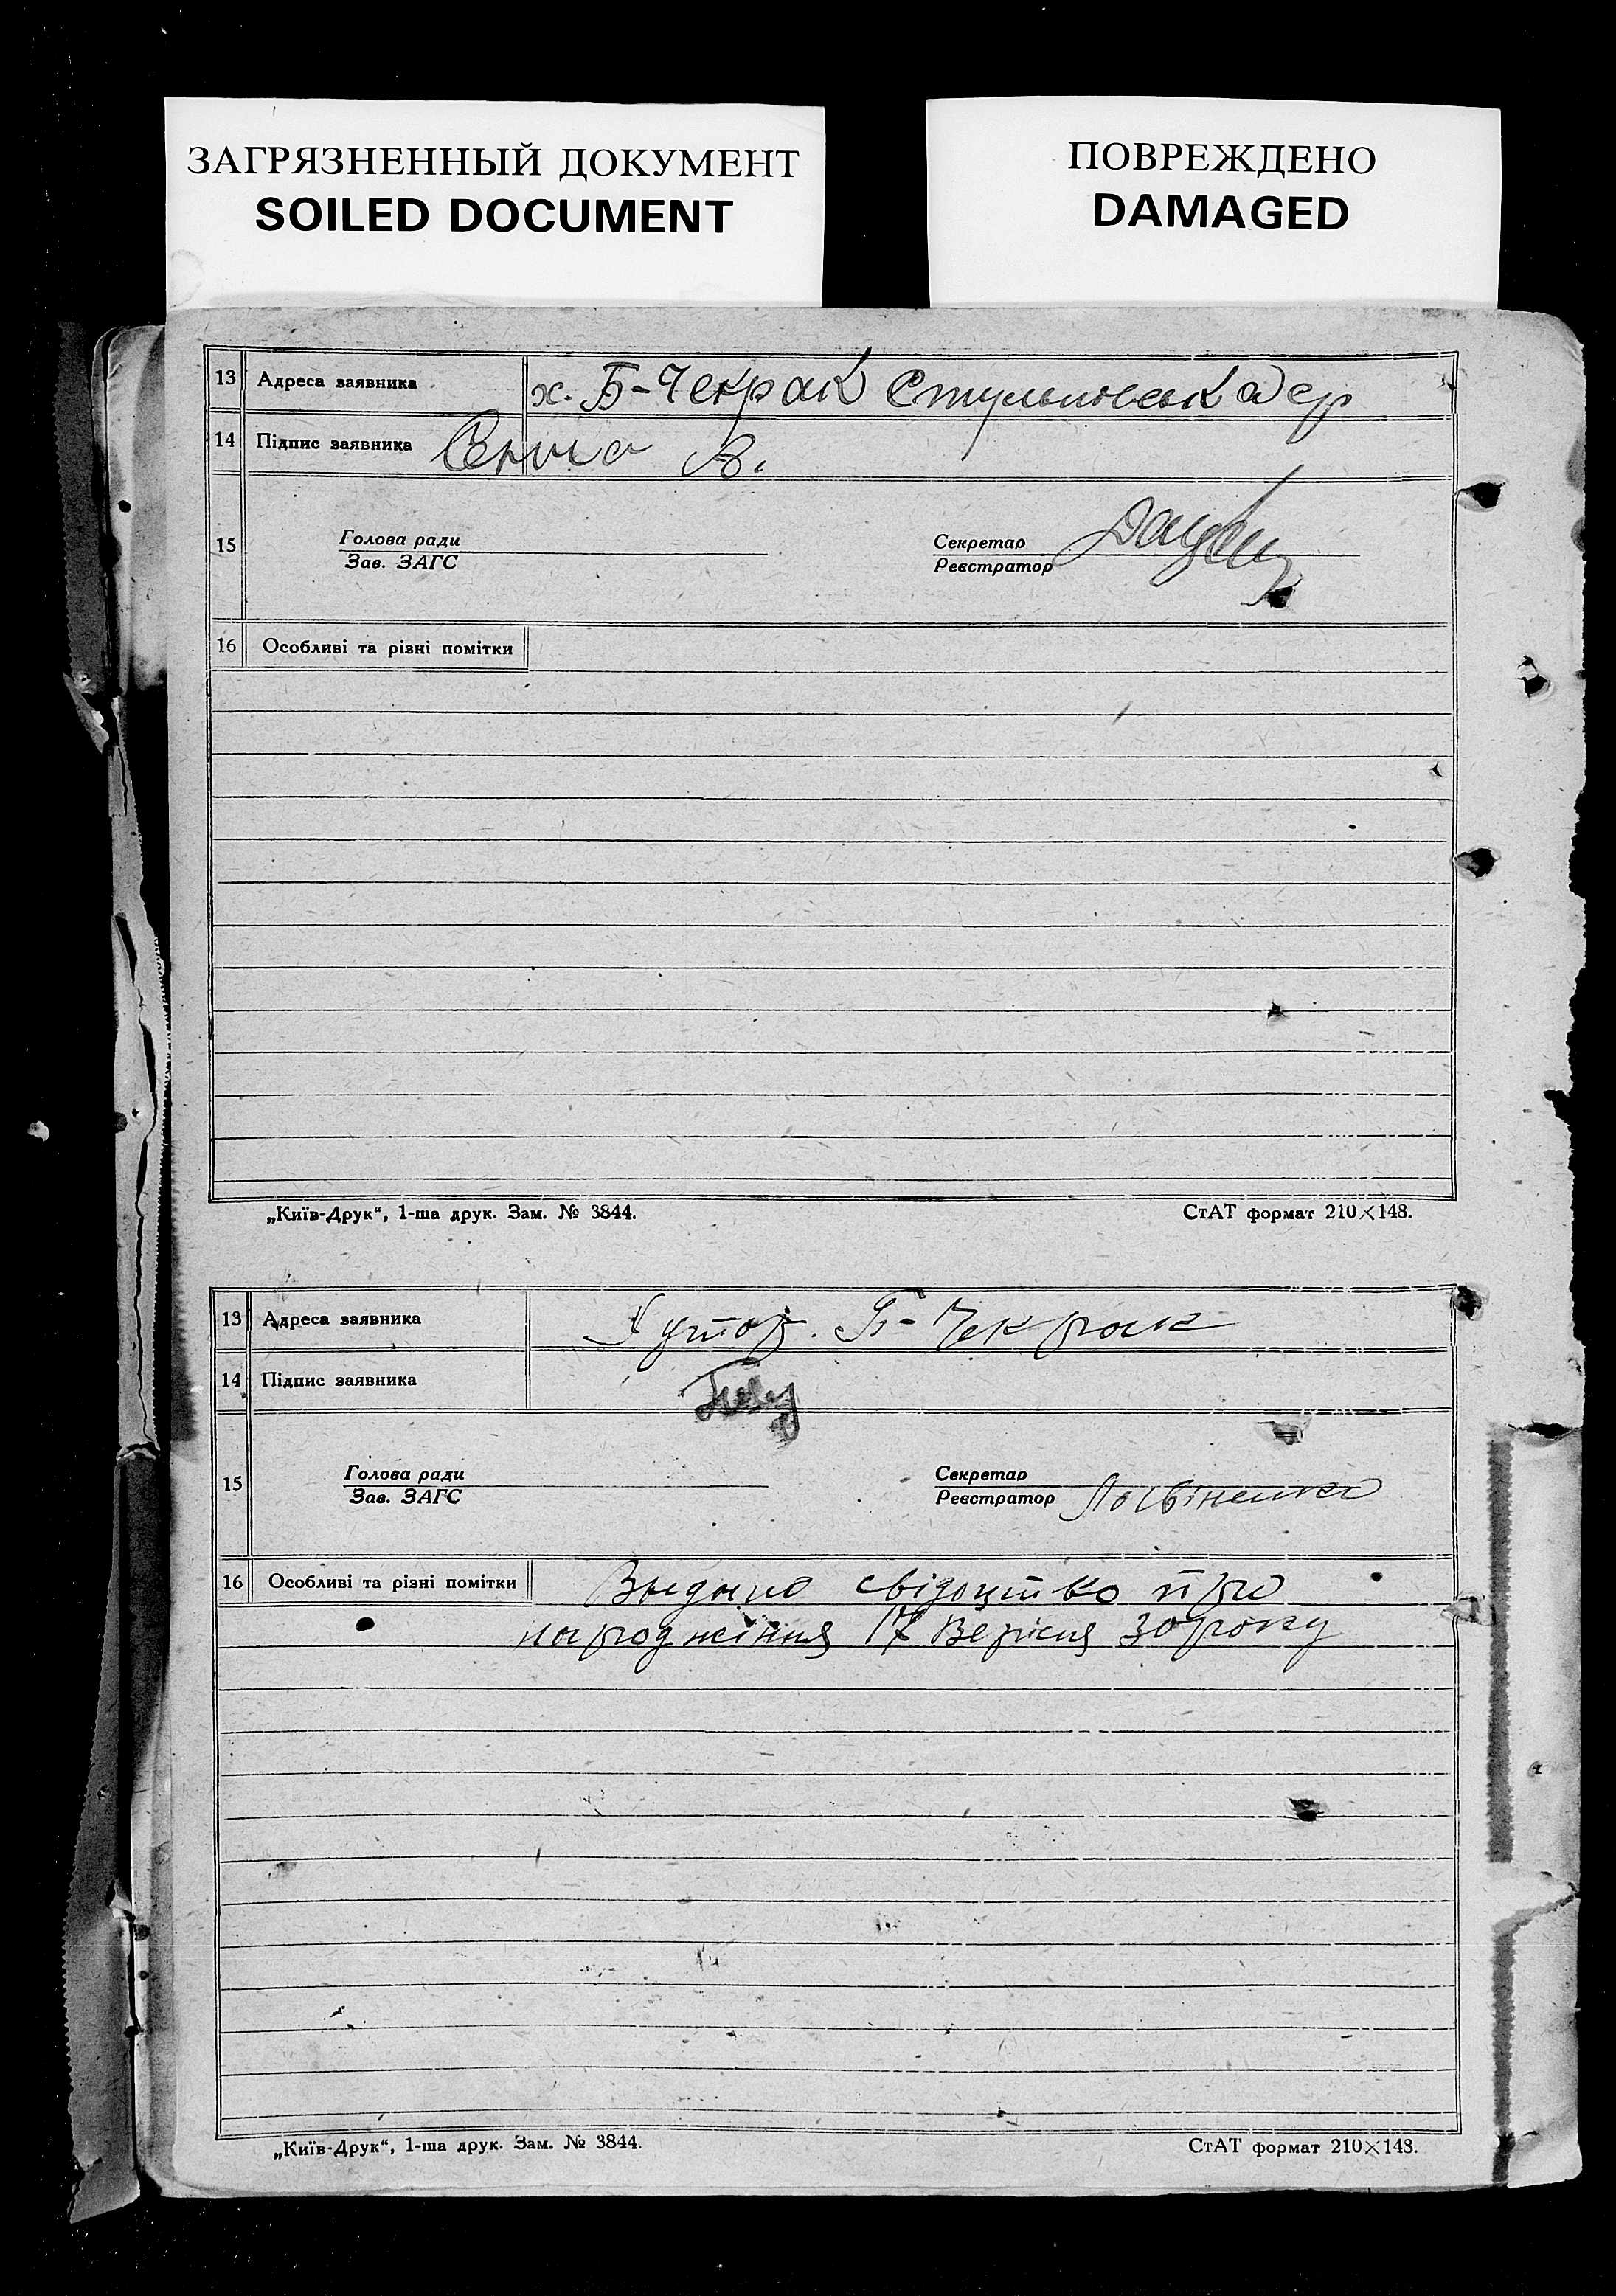 ЗАГРЯЗНЕННЫЙ ДОКУМЕНТ
SOILED DOCUMENT
ПОВРЕЖДЕНО
DAMAGED
13 Адреса заявника х. Б-Чекрак
14 Підпис заявника
15 Голова ради
Зав. ЗАГС
Секретар
Реєстратор
16 Особливі та різні помітки
„Київ-Друк“, 1-ша друк. Зам. № 3844.
СтАТ формат 210×148.
13 Адреса заявника Хутор. Б-Чекрак
14 Підпис заявника
15 Голова ради
Зав. ЗАГС
Секретар
Реєстратор
16 Особливі та різні помітки Выдано свідоцтво про
народження 17 Верісня 30 року
„Київ-Друк“, 1-ша друк. Зам. № 3844.
СтАТ формат 210×148.